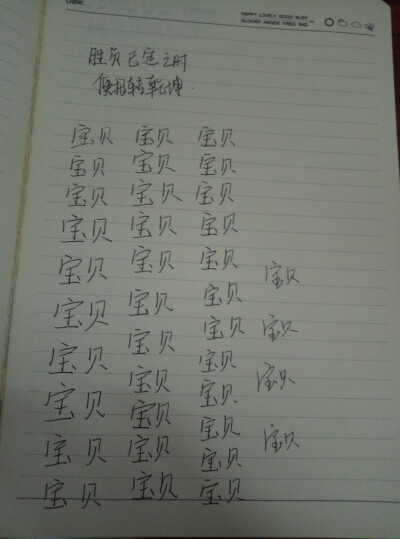 Date:
HAPPY LOVELY GOOD BUSY
GLOOMY ANGER TIRED SAD
胜负已定之时
便扭转乾坤.
宝贝 宝贝 宝贝
宝贝 宝贝 宝贝
宝贝 宝贝 宝贝
宝贝 宝贝 宝贝
宝贝 宝贝 宝贝 宝贝
宝贝 宝贝 宝贝
宝贝 宝贝 宝贝 宝贝
宝贝 宝贝 宝贝 宝贝
宝贝 宝贝 宝贝
宝贝 宝贝 宝贝 宝贝
宝贝 宝贝
宝贝